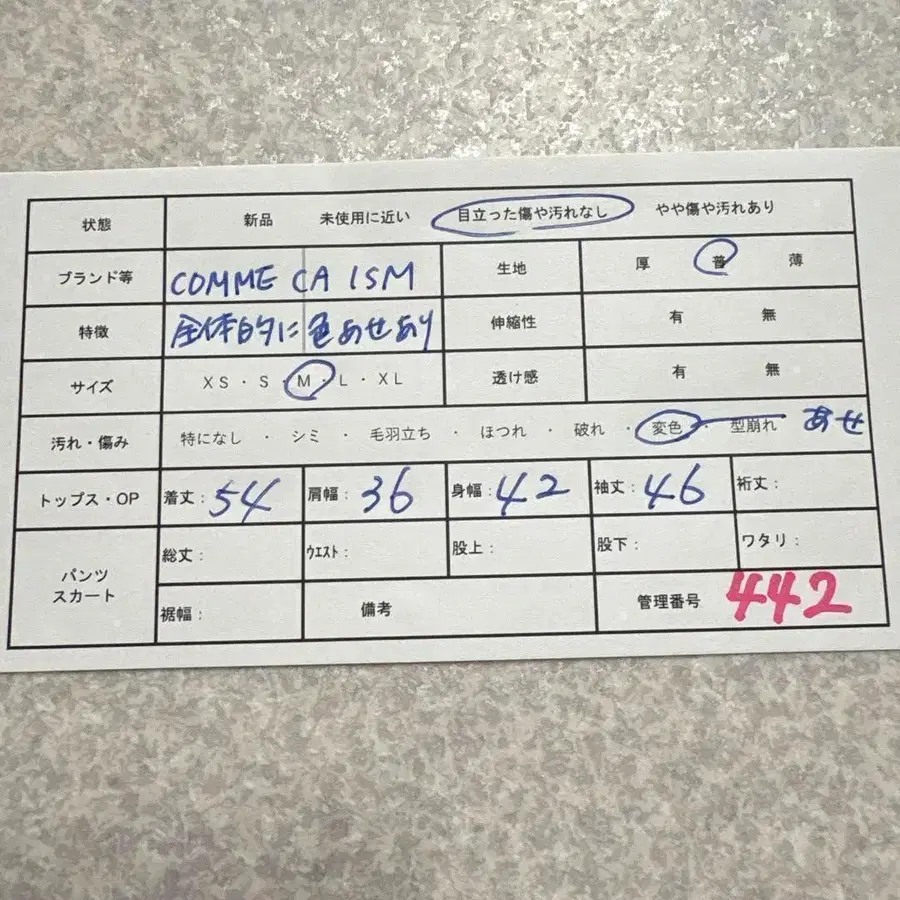 状態 新品 未使用に近い 目立った傷や汚れなし やや傷や汚れあり
ブランド等 COMME CA ISM 生地 厚 普 薄
特徴 全体的に色あせあり 伸縮性 有 無
サイズ XS・S・M・L・XL 透け感 有 無
汚れ・傷み 特になし ・ シミ ・ 毛羽立ち ・ ほつれ ・ 破れ ・ 変色 ・ 型崩れ あせ
トップス・OP 着丈: 54 肩幅: 36 身幅: 42 袖丈: 46 裄丈:
パンツ スカート 総丈: ウエスト: 股上: 股下: ワタリ:
裾幅: 備考 管理番号 442